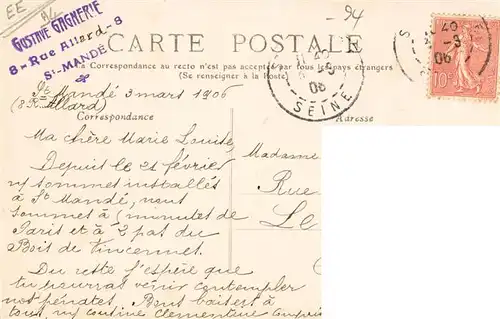 EE
94
GUSTAVE GAGNERIE
8 - Rue Allard - 8
St-MANDÉ
CARTE POSTALE
La Correspondance au recto n'est pas acceptée par tous les pays étrangers
(Se renseigner à la Poste)
SEINE
10
St Mandé 3 mars 1906
(8 R. Allard)
Correspondance
Adresse
Ma chère Marie Louise,
Depuis le 21 février
ns/ sommes installés
à St Mandé, nous
sommes à minutes de
Paris et à 2 pas du
Bois de Vincennes.
Du reste j'espère que
tu pourras venir contempler
nos pénates. Bons baisers à
tous, ta cousine Clementine
Madame
Rue
Le